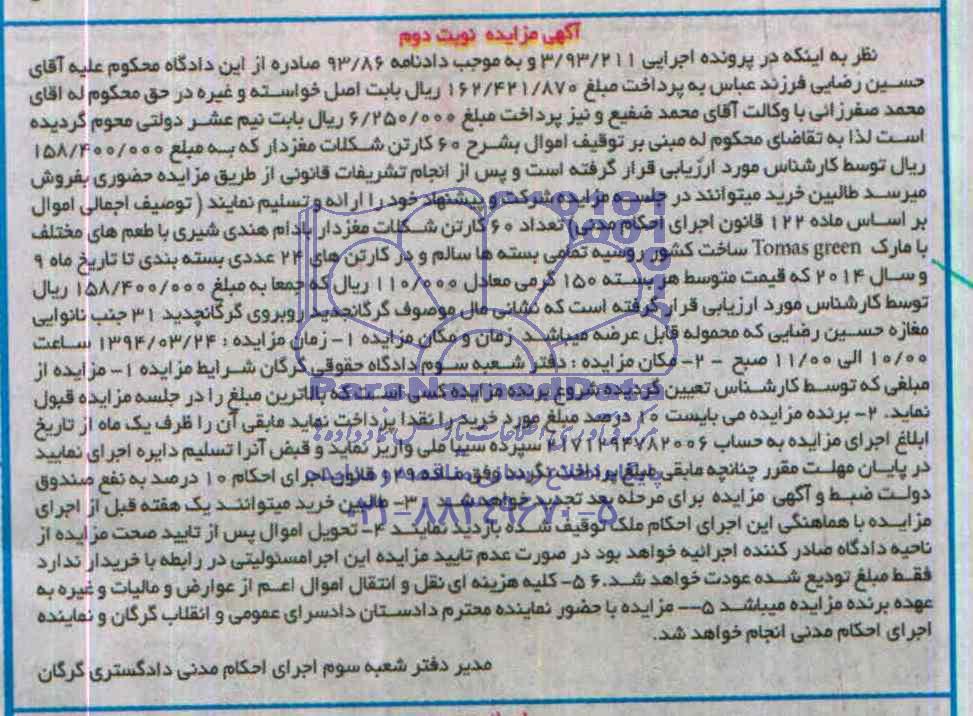 آگهی مزایده نوبت دوم
نظر به اینکه در پرونده اجرایی ۳/۹۳/۲۱۱ و به موجب دادنامه ۹۳/۸۶ صادره از این دادگاه محکوم علیه آقای
حسین رضایی فرزند عباس به پرداخت مبلغ ۱۶۲/۴۲۱/۸۷۰ ریال بابت اصل خواسته و غیره در حق محکوم له اقای
محمد صفرزانی با وکالت آقای محمد ضفیع و نیز پرداخت مبلغ ۶/۲۵۰/۰۰۰ ریال بابت نیم عشر دولتی محوم گردیده
است لذا به تقاضای محکوم له مبنی بر توقیف اموال بشرح ۶۰ کارتن شکلات مغزدار که به مبلغ ۱۵۸/۴۰۰/۰۰۰
ریال توسط کارشناس مورد ارزیابی قرار گرفته است و پس از انجام تشریفات قانونی از طریق مزایده حضوری بفروش
میرسد طالبین خرید میتوانند در جلسه مزایده شرکت و پیشنهاد خود را ارائه و تسلیم نمایند ( توصیف اجمالی اموال
بر اساس ماده ۱۲۲ قانون اجرای احکام مدنی) تعداد ۶۰ کارتن شکلات مغزدار بادام هندی شیری با طعم های مختلف
با مارک Tomas green ساخت کشور روسیه تمامی بسته ها سالم و در کارتن های ۲۴ عددی بسته بندی تا تاریخ ماه ۹
و سال ۲۰۱۴ که قیمت متوسط هر بسته ۱۵۰ گرمی معادل ۱۱۰/۰۰۰ ریال که جمعا به مبلغ ۱۵۸/۴۰۰/۰۰۰ ریال
توسط کارشناس مورد ارزیابی قرار گرفته است که نشانی مال موصوف گرگانجدید روبروی گرگانجدید ۳۱ جنب نانوایی
مغازه حسین رضایی که محموله قابل عرضه میباشد زمان و مکان مزایده ۱- زمان مزایده : ۱۳۹۴/۰۳/۲۴ ساعت
۱۰/۰۰ الی ۱۱/۰۰ صبح - ۲- مکان مزایده : دفتر شعبه سوم دادگاه حقوقی گرگان شرایط مزایده ۱- مزایده از
مبلغی که توسط کارشناس تعیین گردیده شروع برنده مزایده کسی است که بالاترین مبلغ را در جلسه مزایده قبول
نماید. ۲- برنده مزایده می بایست ۱۰ درصد مبلغ مورد خرید را نقدا پرداخت نماید مابقی آن را ظرف یک ماه از تاریخ
ابلاغ اجرای مزایده به حساب ۲۱۷۱۲۹۴۷۸۲۰۰۶ سپرده سیبا ملی واریز نماید و قبض آنرا تسلیم دایره اجرای نمایید
در پایان مهلت مقرر چنانچه مابقی مبلغ پرداخت نگردد وفق ماده ۱۲۹ قانون اجرای احکام ۱۰ درصد به نفع صندوق
دولت ضبط و آگهی مزایده برای مرحله بعد تجدید خواهد شد ۳- طالبین خرید میتوانند یک هفته قبل از اجرای
مزایده با هماهنگی این اجرای احکام ملک توقیف شده بازدید نمایند ۴- تحویل اموال پس از تایید صحت مزایده از
ناحیه دادگاه صادر کننده اجرائیه خواهد بود در صورت عدم تایید مزایده این اجرامسئولیتی در رابطه با خریدار ندارد
فقط مبلغ تودیع شده عودت خواهد شد.۶ ۵- کلیه هزینه ای نقل و انتقال اموال اعم از عوارض و مالیات و غیره به
عهده برنده مزایده میباشد ۵-- مزایده با حضور نماینده محترم دادستان دادسرای عمومی و انقلاب گرگان و نماینده
اجرای احکام مدنی انجام خواهد شد.
مدیر دفتر شعبه سوم اجرای احکام مدنی دادگستری گرگان
ParsNamadData
۰۲۱-۸۸۳۴۹۶۷۰-۵